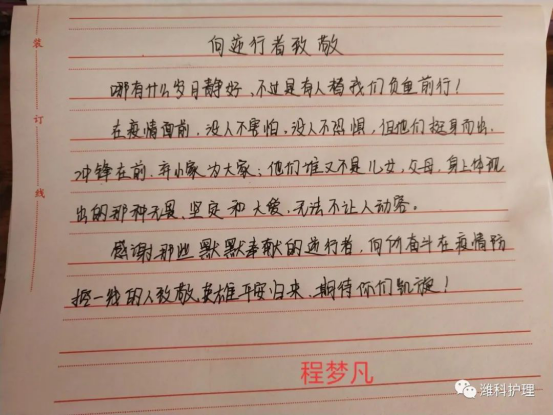 向逆行者致敬
哪有什么岁月静好，不过是有人替我们负重前行！
在疫情面前，没人不害怕，没人不恐惧，但他们挺身而出，
冲锋在前，弃小家为大家；他们谁又不是儿女，父母，身上体现
出的那种无畏、坚定和大爱，无法不让人动容。
感谢那些默默奉献的逆行者，向所奋斗在疫情防
控一线的人致敬，英雄平安归来，期待你们凯旋！
装
订
线
程梦凡
潍科护理